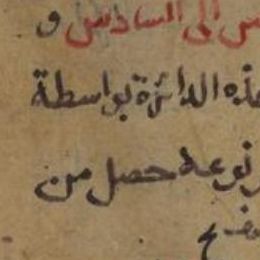 الى السادس و
هذه الدائرة بواسطة
نوعه حصل من